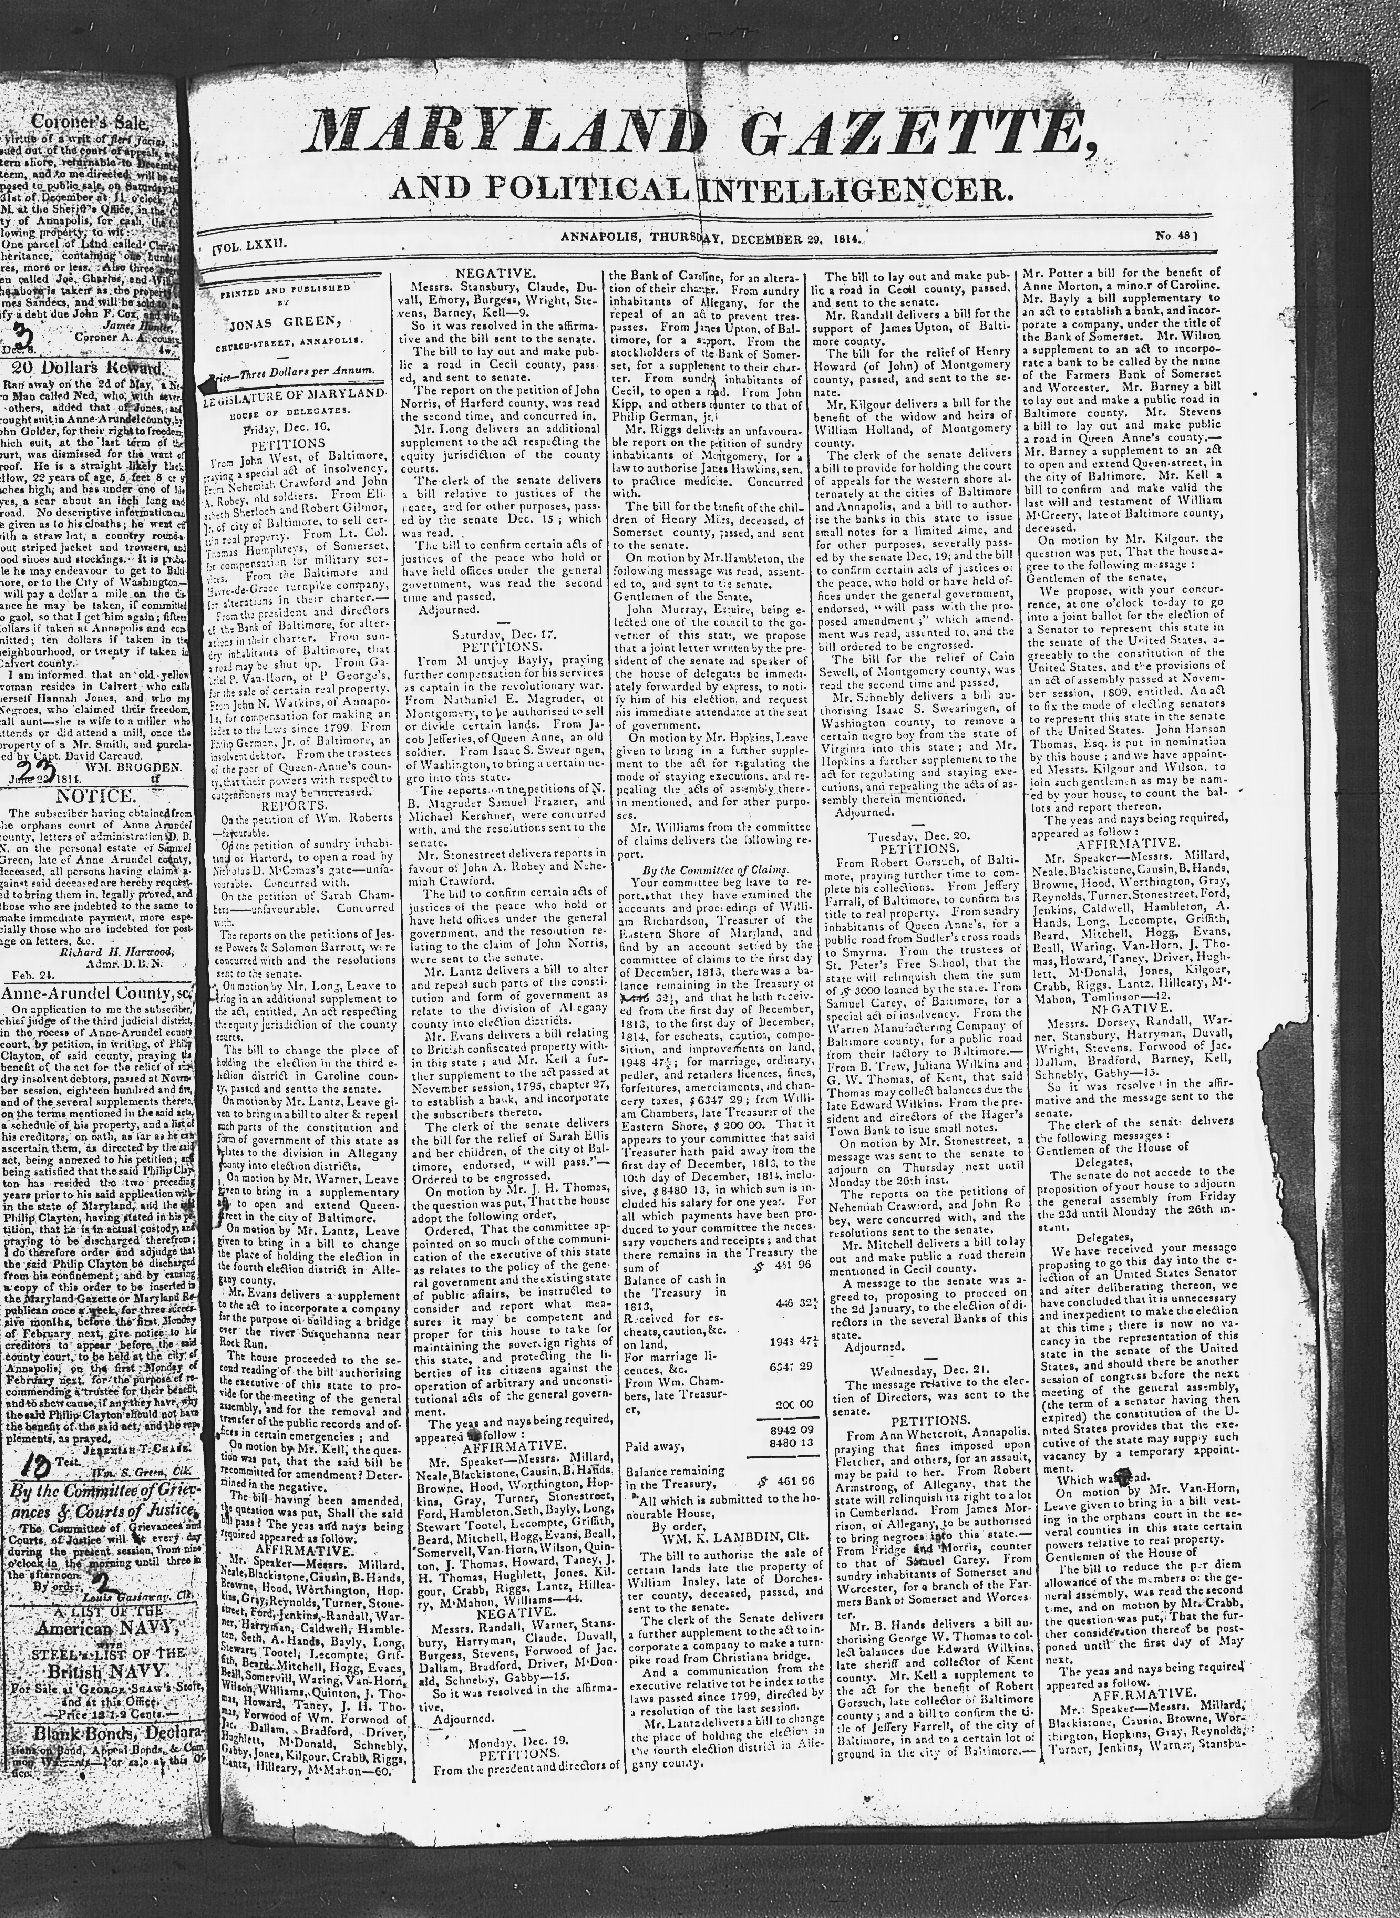 Coroner's Sale.
virtue of a writ of fieri facias, is
sued out of the court of appeals,
tern shore, returnable to December
teem, and to me directed, will be
posed to public sale, on Saturday
31st of December at 11 o'clock,
M. at the Sheriff's Office, in the
ty of Annapolis, for cash, the
lowing property, to wit:
One parcel of Land called
heritance, containing one hundred
res, more or less. Also three
en called Joe, Charles, and
he above is taken as the property
mes Sanders, and will be sold to
fy a debt due John F. Cox,
James Hunter,
Coroner A. A. county
Dec. 8. 4w.
20 Dollars Reward.
Ran away on the 2d of May, a Ne-
ro Man called Ned, who, with seve-
others, added that of Jones, and
rought suit in Anne-Arundel county, by
ohn Golder, for their right to freedom,
hich suit, at the last term of the
urt, was dismissed for the want of
roof. He is a straight likely black
ellow, 22 years of age, 5 feet 8 or 9
ches high, and has under one of his
yes, a scar about an inch long and
road. No descriptive information can
e given as to his cloaths; he went off
ith a straw hat, a country round-
out striped jacket and trowsers, and
ood shoes and stockings. It is proba-
le he may endeavour to get to Balti
more, or to the City of Washington.—
will pay a dollar a mile on the dis
ance he may be taken, if committed
o gaol, so that I get him again; fifteen
ollars if taken at Annapolis and com
mitted; ten dollars if taken in the
eighbourhood, or twenty if taken in
Calvert county.
I am informed that an old yellow
woman resides in Calvert who calls
erself Hannah Jones, and who my
Negroes, who claimed their freedom,
all aunt—she is wife to a miller who
ttends or did attend a mill, once the
property of a Mr. Smith, and purcha-
ed by Capt. David Carcaud.
WM. BROGDEN.
June 23, 1814. tf
NOTICE.
The subscriber having obtained from
he orphans court of Anne Arundel
county, letters of administration D. B.
N. on the personal estate of Samuel
Green, late of Anne Arundel county,
deceased, all persons having claims a-
gainst said deceased are hereby request-
ed to bring them in, legally proved, and
those who are indebted to the same to
make immediate payment, more espe-
cially those who are indebted for post-
age on letters, &c.
Richard H. Harwood,
Admr. D. B. N.
Feb. 24.
Anne-Arundel County, sc.
On application to me the subscriber,
chief judge of the third judicial district,
in the recess of Anne-Arundel county
court, by petition, in writing, of Philip
Clayton, of said county, praying the
benefit of the act for the relief of sun-
dry insolvent debtors, passed at Novem-
ber session, eighteen hundred and five,
and of the several supplements thereto,
on the terms mentioned in the said acts,
a schedule of his property, and a list of
his creditors, on oath, as far as he can
ascertain them, as directed by the said
act, being annexed to his petition; and
being satisfied that the said Philip Clay-
ton has resided the two preceding
years prior to his said application with-
in the state of Maryland, and the said
Philip Clayton, having stated in his pe-
tition, that he is in actual custody, and
praying to be discharged therefrom;
I do therefore order and adjudge that
the said Philip Clayton be discharged
from his confinement; and by causing
a copy of this order to be inserted in
the Maryland Gazette or Maryland Re-
publican once a week, for three succes-
sive months, before the first Monday
of February next, give notice to his
creditors to appear before the said
county court, to be held at the city of
Annapolis, on the first Monday of
February next, for the purpose of re-
commending a trustee for their benefit,
and to show cause, if any they have, why
the said Philip Clayton should not have
the benefit of the said act, and the sup-
plements, as prayed.
JEREMIAH T. CHASE.
Test.
Wm. S. Green, Clk.
By the Committee of Griev-
ances & Courts of Justice.
The Committee of Grievances and
Courts of Justice will sit every day
during the present session, from nine
o'clock in the morning until three in
the afternoon.
By order, Louis Gassaway, Clk.
A LIST OF THE
American NAVY,
WITH
STEEL'S LIST OF THE
British NAVY.
For Sale at GEORGE SHAW'S Store,
and at this Office.
—Price 12 1-2 Cents.—
Blank Bonds, Declara-
tions on Bond, Appeal Bonds, & Com
mon Warrants—For sale at this Of-
fice.
MARYLAND GAZETTE,
AND POLITICAL INTELLIGENCER.
[VOL. LXXII. ANNAPOLIS, THURSDAY, DECEMBER 29, 1814. No 48]
PRINTED AND PUBLISHED
BY
JONAS GREEN,
CHURCH-STREET, ANNAPOLIS.
Price—Three Dollars per Annum.
LEGISLATURE OF MARYLAND.
HOUSE OF DELEGATES.
Friday, Dec. 16.
PETITIONS
From John West, of Baltimore,
praying a special act of insolvency.
From Nehemiah Crawford and John
A. Robey, old soldiers. From Eli-
sabeth Sherloch and Robert Gilmor,
Jr. of city of Baltimore, to sell cer-
tain real property. From Lt. Col.
Thomas Humphreys, of Somerset,
for compensation for military ser-
vices. From the Baltimore and
Havre-de-Grace turnpike company,
for alterations in their charter.—
From the president and directors
of the Bank of Baltimore, for alter-
ations in their charter. From sun-
dry inhabitants of Baltimore, that
a road may be shut up. From Ga-
briel P. Van-Horn, of P George's,
for the sale of certain real property.
From John N. Watkins, of Annapo-
lis, for compensation for making an
index to the Laws since 1799. From
Philip German, Jr. of Baltimore, an
insolvent debtor. From the trustees
of the poor of Queen-Anne's coun-
ty, that their powers with respect to
outpensioners may be increased.
REPORTS.
On the petition of Wm. Roberts
—favourable.
On the petition of sundry inhabi-
tants of Harford, to open a road by
Nicholas D. McComas's gate—unfa-
vourable. Concurred with.
On the petition of Sarah Cham-
bers—unfavourable. Concurred
with.
The reports on the petitions of Jes-
se Powers & Solomon Barrott, were
concurred with and the resolutions
sent to the senate.
On motion by Mr. Long, Leave to
bring in an additional supplement to
the act, entitled, An act respecting
the equity jurisdiction of the county
courts.
The bill to change the place of
holding the election in the third e-
lection district in Caroline coun-
ty, passed and sent to the senate.
On motion by Mr. Lantz, Leave gi-
ven to bring in a bill to alter & repeal
such parts of the constitution and
form of government of this state as
relates to the division in Allegany
county into election districts.
On motion by Mr. Warner, Leave
given to bring in a supplementary
act to open and extend Queen-
street in the city of Baltimore.
On motion by Mr. Lantz, Leave
given to bring in a bill to change
the place of holding the election in
the fourth election district in Alle-
gany county.
Mr. Evans delivers a supplement
to the act to incorporate a company
for the purpose of building a bridge
over the river Susquehanna near
Rock Run.
The house proceeded to the se-
cond reading of the bill authorising
the executive of this state to pro-
vide for the meeting of the general
assembly, and for the removal and
transfer of the public records and of-
fices in certain emergencies; and
On motion by Mr. Kell, the ques-
tion was put, that the said bill be
recommitted for amendment? Deter-
mined in the negative.
The bill having been amended,
the question was put, Shall the said
bill pass? The yeas and nays being
required appeared as follow.
AFFIRMATIVE.
Mr. Speaker—Messrs. Millard,
Neale, Blackistone, Causin, B. Hands,
Browne, Hood, Worthington, Hop-
kins, Gray, Reynolds, Turner, Stone-
street, Ford, Jenkins, Randall, War-
ner, Harryman, Caldwell, Hamble-
ton, Seth, A. Hands, Bayly, Long,
Stewart, Tootel, Lecompte, Grif-
fith, Beard, Mitchell, Hogg, Evans,
Beall, Somervill, Waring, Van-Horn,
Wilson, Williams, Quinton, J. Tho-
mas, Howard, Taney, J. H. Tho-
mas, Forwood of Wm. Forwood of
Jac. Dallam, Bradford, Driver,
Hughlett, M'Donald, Schnebly,
Gabby, Jones, Kilgour, Crabb, Riggs,
Lantz, Hilleary, M'Mahon—60.
NEGATIVE.
Messrs. Stansbury, Claude, Du-
vall, Emory, Burgess, Wright, Ste-
vens, Barney, Kell—9.
So it was resolved in the affirma-
tive and the bill sent to the senate.
The bill to lay out and make pub-
lic a road in Cecil county, pass
ed, and sent to senate.
The report on the petition of John
Norris, of Harford county, was read
the second time, and concurred in.
Mr. Long delivers an additional
supplement to the act respecting the
equity jurisdiction of the county
courts.
The clerk of the senate delivers
a bill relative to justices of the
peace, and for other purposes, pass-
ed by the senate Dec. 15; which
was read.
The bill to confirm certain acts of
justices of the peace who hold or
have held offices under the general
government, was read the second
time and passed.
Adjourned.
Saturday, Dec. 17.
PETITIONS.
From Mountjoy Bayly, praying
further compensation for his services
as captain in the revolutionary war.
From Nathaniel E. Magruder, of
Montgomery, to be authorised to sell
or divide certain lands. From Ja-
cob Jefferies, of Queen Anne, an old
soldier. From Isaac S. Swearingen,
of Washington, to bring a certain ne-
gro into this state.
The reports on the petitions of N.
B. Magruder Samuel Frazier, and
Michael Kershner, were concurred
with, and the resolutions sent to the
senate.
Mr. Stonestreet delivers reports in
favour of John A. Robey and Nehe-
miah Crawford.
The bill to confirm certain acts of
justices of the peace who hold or
have held offices under the general
government, and the resolution re-
lating to the claim of John Norris,
were sent to the senate.
Mr. Lantz delivers a bill to alter
and repeal such parts of the consti-
tution and form of government as
relate to the division of Allegany
county into election districts.
Mr. Evans delivers a bill relating
to British confiscated property with-
in this state; and Mr. Kell a fur-
ther supplement to the act passed at
November session, 1795, chapter 27,
to establish a bank, and incorporate
the subscribers thereto.
The clerk of the senate delivers
the bill for the relief of Sarah Ellis
and her children, of the city of Bal-
timore, endorsed, "will pass."—
Ordered to be engrossed.
On motion by Mr. J. H. Thomas,
the question was put, That the house
adopt the following order,
Ordered, That the committee ap-
pointed on so much of the communi-
cation of the executive of this state
as relates to the policy of the gene-
ral government and the existing state
of public affairs, be instructed to
consider and report what mea-
sures it may be competent and
proper for this house to take for
maintaining the sovereign rights of
this state, and protecting the li-
berties of its citizens against the
operation of arbitrary and unconsti-
tutional acts of the general govern-
ment.
The yeas and nays being required,
appeared as follow:
AFFIRMATIVE.
Mr. Speaker—Messrs. Millard,
Neale, Blackistone, Causin, B. Hands,
Browne, Hood, Worthington, Hop-
kins, Gray, Turner, Stonestreet,
Ford, Hambleton, Seth, Bayly, Long,
Stewart Tootel, Lecompte, Griffith,
Beard, Mitchell, Hogg, Evans, Beall,
Somervell, Van-Horn, Wilson, Quin-
ton, J. Thomas, Howard, Taney, J.
H. Thomas, Hughlett, Jones, Kil-
gour, Crabb, Riggs, Lantz, Hillea-
ry, M'Mahon, Williams—44.
NEGATIVE.
Messrs. Randall, Warner, Stans-
bury, Harryman, Claude, Duvall,
Burgess, Stevens, Forwood of Jac.
Dallam, Bradford, Driver, M'Don-
ald, Schnebly, Gabby—15.
So it was resolved in the affirma-
tive.
Adjourned.
Monday, Dec. 19.
PETITIONS.
From the president and directors of
the Bank of Caroline, for an altera-
tion of their charter. From sundry
inhabitants of Allegany, for the
repeal of an act to prevent tres-
passes. From James Upton, of Bal-
timore, for a support. From the
stockholders of the Bank of Somer-
set, for a supplement to their char-
ter. From sundry inhabitants of
Cecil, to open a road. From John
Kipp, and others counter to that of
Philip German, jr.
Mr. Riggs delivers an unfavoura-
ble report on the petition of sundry
inhabitants of Montgomery, for a
law to authorise James Hawkins, sen.
to practice medicine. Concurred
with.
The bill for the benefit of the chil-
dren of Henry Miles, deceased, of
Somerset county, passed, and sent
to the senate.
On motion by Mr. Hambleton, the
following message was read, assent-
ed to, and sent to the senate.
Gentlemen of the Senate,
John Murray, Esquire, being e-
lected one of the council to the go-
vernor of this state, we propose
that a joint letter written by the pre-
sident of the senate and speaker of
the house of delegates be immedi-
ately forwarded by express, to noti-
fy him of his election, and request
his immediate attendance at the seat
of government.
On motion by Mr. Hopkins, Leave
given to bring in a further supple-
ment to the act for regulating the
mode of staying executions, and re-
pealing the acts of assembly there-
in mentioned, and for other purpo-
ses.
Mr. Williams from the committee
of claims delivers the following re-
port.
By the Committee of Claims.
Your committee beg leave to re-
port, that they have examined the
accounts and proceedings of Willi-
am Richardson, Treasurer of the
Eastern Shore of Maryland, and
find by an account settled by the
committee of claims to the first day
of December, 1813, there was a ba-
lance remaining in the Treasury of
$446 32½, and that he hath receiv-
ed from the first day of December,
1813, to the first day of December,
1814, for escheats, caution, compo-
sition, and improvements on land,
1948 47½; for marriage, ordinary,
pedler, and retailers licences, fines,
forfeitures, amerciaments, and chan-
cery taxes, $6347 29; from Willi-
am Chambers, late Treasurer of the
Eastern Shore, $200 00. That it
appears to your committee that said
Treasurer hath paid away from the
first day of December, 1813, to the
10th day of December, 1814, inclu-
sive, $8480 13, in which sum is in-
cluded his salary for one year. For
all which payments have been pro-
duced to your committee the neces-
sary vouchers and receipts; and that
there remains in the Treasury the
sum of $ 461 96
Balance of cash in
the Treasury in
1813, 446 32½
Received for es-
cheats, caution, &c.
on land, 1943 47½
For marriage li-
cences, &c. 6347 29
From Wm. Cham-
bers, late Treasur-
er, 200 00
8942 09
Paid away, 8480 13
Balance remaining
in the Treasury, $ 461 96
All which is submitted to the ho-
nourable House,
By order,
WM. K. LAMBDIN, Clk.
The bill to authorise the sale of
certain lands late the property of
William Insley, late of Dorches-
ter county, deceased, passed, and
sent to the senate.
The clerk of the Senate delivers
a further supplement to the act to in-
corporate a company to make a turn-
pike road from Christiana bridge.
And a communication from the
executive relative to the index to the
laws passed since 1799, directed by
a resolution of the last session.
Mr. Lantz delivers a bill to change
the place of holding the election in
the fourth election district in Alle-
gany county.
The bill to lay out and make pub-
lic a road in Cecil county, passed,
and sent to the senate.
Mr. Randall delivers a bill for the
support of James Upton, of Balti-
more county.
The bill for the relief of Henry
Howard (of John) of Montgomery
county, passed, and sent to the se-
nate.
Mr. Kilgour delivers a bill for the
benefit of the widow and heirs of
William Holland, of Montgomery
county.
The clerk of the senate delivers
a bill to provide for holding the court
of appeals for the western shore al-
ternately at the cities of Baltimore
and Annapolis, and a bill to author-
ise the banks in this state to issue
small notes for a limited time, and
for other purposes, severally pass-
ed by the senate Dec. 19; and the bill
to confirm certain acts of justices of
the peace, who hold or have held of-
fices under the general government,
endorsed, "will pass with the pro-
posed amendment;" which amend-
ment was read, assented to, and the
bill ordered to be engrossed.
The bill for the relief of Cain
Sewell, of Montgomery county, was
read the second time and passed.
Mr. Schnebly delivers a bill au-
thorising Isaac S. Swearingen, of
Washington county, to remove a
certain negro boy from the state of
Virginia into this state; and Mr.
Hopkins a further supplement to the
act for regulating and staying exe-
cutions, and repealing the acts of as-
sembly therein mentioned.
Adjourned.
Tuesday, Dec. 20.
PETITIONS.
From Robert Gorsuch, of Balti-
more, praying further time to com-
plete his collections. From Jeffery
Farrall, of Baltimore, to confirm his
title to real property. From sundry
inhabitants of Queen Anne's, for a
public road from Sudler's cross roads
to Smyrna. From the trustees of
St. Peter's Free School, that the
state will relinquish them the sum
of $3000 loaned by the state. From
Samuel Carey, of Baltimore, for a
special act of insolvency. From the
Warren Manufacturing Company of
Baltimore county, for a public road
from their factory to Baltimore.—
From B. Trew, Juliana Wilkins and
G. W. Thomas, of Kent, that said
Thomas may collect balances due the
late Edward Wilkins. From the pre-
sident and directors of the Hager's
Town Bank to issue small notes.
On motion by Mr. Stonestreet, a
message was sent to the senate to
adjourn on Thursday next until
Monday the 26th inst.
The reports on the petitions of
Nehemiah Crawford, and John Ro
bey, were concurred with, and the
resolutions sent to the senate.
Mr. Mitchell delivers a bill to lay
out and make public a road therein
mentioned in Cecil county.
A message to the senate was a-
greed to, proposing to proceed on
the 2d January, to the election of di-
rectors in the several Banks of this
state.
Adjourned.
Wednesday, Dec. 21.
The message relative to the elec-
tion of Directors, was sent to the
senate.
PETITIONS.
From Ann Whetcroft, Annapolis,
praying that fines imposed upon
Fletcher, and others, for an assault,
may be paid to her. From Robert
Armstrong, of Allegany, that the
state will relinquish its right to a lot
in Cumberland. From James Mor-
rison, of Allegany, to be authorised
to bring negroes into this state.—
From Fridge and Morris, counter
to that of Samuel Carey. From
sundry inhabitants of Somerset and
Worcester, for a branch of the Far-
mers Bank of Somerset and Worces-
ter.
Mr. B. Hands delivers a bill au-
thorising George W. Thomas to col-
lect balances due Edward Wilkins,
late sheriff and collector of Kent
county. Mr. Kell a supplement to
the act for the benefit of Robert
Gorsuch, late collector of Baltimore
county; and a bill to confirm the ti-
tle of Jeffery Farrell, of the city of
Baltimore, in and to a certain lot of
ground in the city of Baltimore.—
Mr. Potter a bill for the benefit of
Anne Morton, a minor of Caroline.
Mr. Bayly a bill supplementary to
an act to establish a bank, and incor-
porate a company, under the title of
the Bank of Somerset. Mr. Wilson
a supplement to an act to incorpo-
rate a bank to be called by the name
of the Farmers Bank of Somerset
and Worcester. Mr. Barney a bill
to lay out and make a public road in
Baltimore county. Mr. Stevens
a bill to lay out and make public
a road in Queen Anne's county.—
Mr. Barney a supplement to an act
to open and extend Queen-street, in
the city of Baltimore. Mr. Kell a
bill to confirm and make valid the
last will and testament of William
M'Creery, late of Baltimore county,
deceased.
On motion by Mr. Kilgour, the
question was put, That the house a-
gree to the following message:
Gentlemen of the senate,
We propose, with your concur-
rence, at one o'clock to-day to go
into a joint ballot for the election of
a Senator to represent this state in
the senate of the United States, a-
greeably to the constitution of the
United States, and the provisions of
an act of assembly passed at Novem-
ber session, 1809, entitled, An act
to fix the mode of electing senators
to represent this state in the senate
of the United States. John Hanson
Thomas, Esq. is put in nomination
by this house; and we have appoint-
ed Messrs. Kilgour and Wilson, to
join such gentlemen as may be nam-
ed by your house, to count the bal-
lots and report thereon.
The yeas and nays being required,
appeared as follow:
AFFIRMATIVE.
Mr. Speaker—Messrs. Millard,
Neale, Blackistone, Causin, B. Hands,
Browne, Hood, Worthington, Gray,
Reynolds, Turner, Stonestreet, Ford,
Jenkins, Caldwell, Hambleton, A.
Hands, Long, Lecompte, Griffith,
Beard, Mitchell, Hogg, Evans,
Beall, Waring, Van-Horn, J. Tho-
mas, Howard, Taney, Driver, Hugh-
lett, M'Donald, Jones, Kilgour,
Crabb, Riggs, Lantz, Hilleary, M'-
Mahon, Tomlinson—42.
NEGATIVE.
Messrs. Dorsey, Randall, War-
ner, Stansbury, Harryman, Duvall,
Wright, Stevens, Forwood of Jac.
Dallam, Bradford, Barney, Kell,
Schnebly, Gabby—15.
So it was resolved in the affir-
mative and the message sent to the
senate.
The clerk of the senate delivers
the following messages:
Gentlemen of the House of
Delegates,
The senate do not accede to the
proposition of your house to adjourn
the general assembly from Friday
the 23d until Monday the 26th in-
stant.
Delegates,
We have received your message
proposing to go this day into the e-
lection of an United States Senator
and after deliberating thereon, we
have concluded that it is unnecessary
and inexpedient to make the election
at this time; there is now no va-
cancy in the representation of this
state in the senate of the United
States, and should there be another
session of congress before the next
meeting of the general assembly,
(the term of a senator having then
expired) the constitution of the U-
nited States provides that the exe-
cutive of the state may supply such
vacancy by a temporary appoint-
ment.
Which was read.
On motion by Mr. Van-Horn,
Leave given to bring in a bill vest-
ing in the orphans court in the se-
veral counties in this state certain
powers relative to real property.
Gentlemen of the House of
The bill to reduce the per diem
allowance of the members of the ge-
neral assembly, was read the second
time, and on motion by Mr. Crabb,
the question was put, That the fur-
ther consideration thereof be post-
poned until the first day of May
next.
The yeas and nays being required
appeared as follow.
AFFIRMATIVE.
Mr. Speaker—Messrs. Millard,
Blackistone, Causin, Browne, Wor-
thington, Hopkins, Gray, Reynolds,
Turner, Jenkins, Warner, Stansbu-